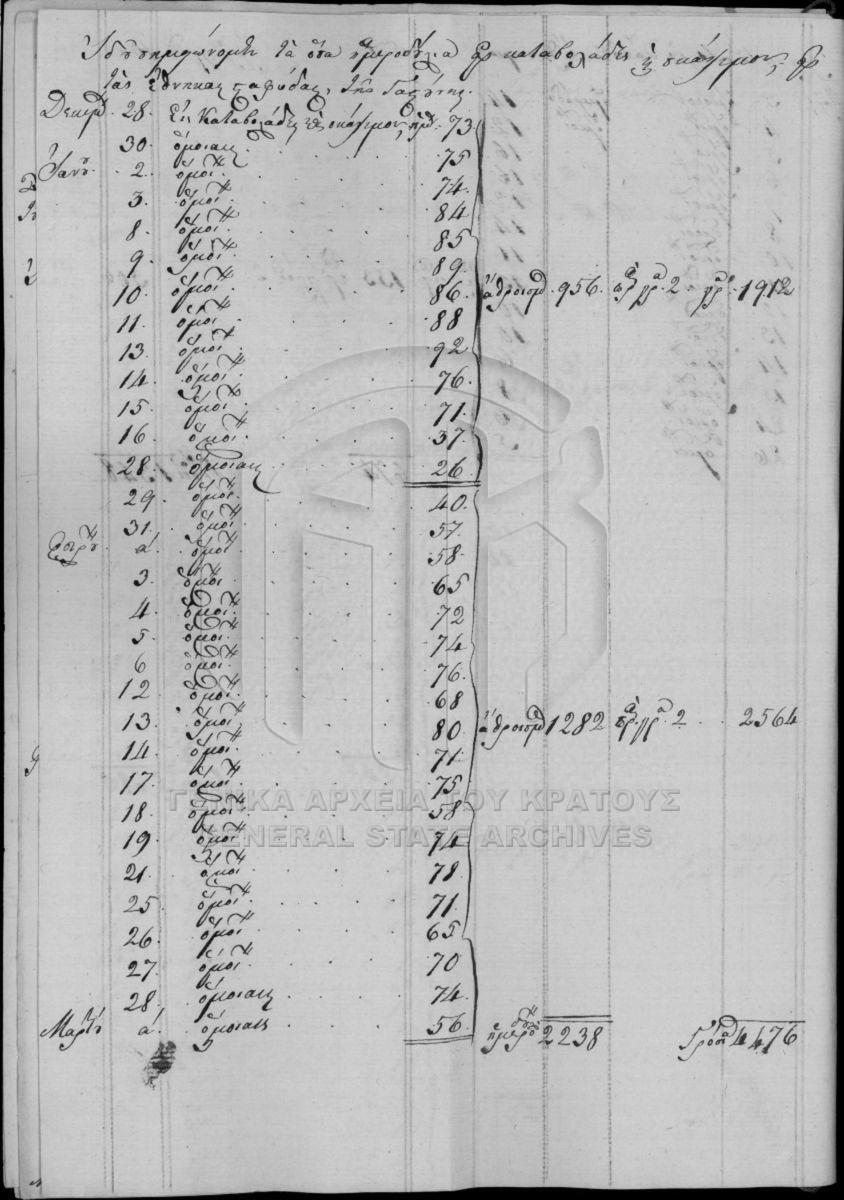 τὰ ὅσα ἡμεροδούλια εἰς καταβολάδες κ σκάψιμον εἰς
τὰς ἐθνικὰς σταφίδας, τῆς Γαστούνης
Δεκεμβ 28. Εἰς Καταβολάδες κ σκάψιμον ἡμ 73
30. ὅμοιως 75
Ἰανου. 2. ὅμοι. 74
3. ὅμοι. 84
8. ὅμοι. 85
9. ὅμοι. 89
10. ὅμοι. 86 ἄθροισμα 956. πρ γρ 2. γρ 1912
11. ὅμοι. 88
13. ὅμοι. 92
14. ὅμοι. 76
15. ὅμοι. 71
16. ὅμοι. 37
28. ὅμοιως 26
29. ὅμοι. 40
31. ὅμοι. 57
α. ὅμοι. 58
3. ὅμοι. 65
4. ὅμοι. 72
5. ὅμοι. 74
6. ὅμοι. 76
12. ὅμοι. 68
13. ὅμοι. 80 ἄθροισμ 1282 πρ. γρ. 2 2564
14. ὅμοι. 71
17. ὅμοι. 75
18. ὅμοι. 58
19. ὅμοι. 74
21. ὅμοι. 78
25. ὅμοι. 71
26. ὅμοι. 65
27. ὅμοι. 70
28. ὅμοιως 74
Μαρτίου α. ὅμοιως 56 ἡμερο 2238 Γρόσια 4476
ΓΕΝΙΚΑ ΑΡΧΕΙΑ ΤΟΥ ΚΡΑΤΟΥΣ
GENERAL STATE ARCHIVES